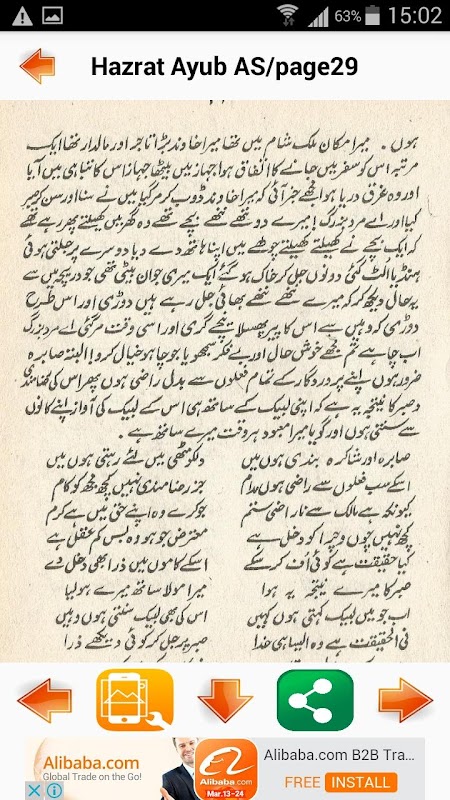 63% 15:02
Hazrat Ayub AS/page29
ہوں ۔ میرا مکان ملک شام میں تھا میرا خاوند بڑا تاجر اور مالدار تھا ایک
مرتبہ اس کو سفر میں جانے کا اتفاق ہوا جہاز میں بیٹھا جہاز اس کا تباہی میں آیا
اور وہ غرق دریا ہوا مجھے خبر آئی کہ میرا خاوند ڈوب کر مر گیا میں نے سنا اور سن کر صبر
کیا اور اے مرد بزرگ! میرے دو ننھے ننھے بچے تھے وہ گھر میں کھیلتے پھر رہے تھے
کہ ایک بچے نے کھیلتے کھیلتے چولھے میں اپنا ہاتھ دے دیا دوسرے پر جلتی ہوئی
ہنڈیا الٹ گئی دونوں جل کر خاک ہو گئے ایک میری جوان بیٹی تھی جو دریچہ میں سے
یہ حال دیکھ کر کہ میرے ننھے ننھے بھائی جل رہے ہیں دوڑی اور اس طرح
دوڑی کہ وہیں سے اس کا پیر پھسلا نیچے گری اور اسی وقت مر گئی اے مرد بزرگ
اب چاہے تم مجھے خوش حال اور بے فکر سمجھو یا جو چاہو خیال کرو! البتہ صابرہ
ضرور ہوں اپنے پروردگار کے تمام فعلوں سے بدل راضی ہوں پھر اس کی رضامندی
و صبر کا نتیجہ یہ ہے کہ اپنی لبیک کے ساتھ ہی اس کے لبیک کی آواز اپنے کانوں
سے سنتی ہوں اور گویا میرا معبود ہر وقت میرے ساتھ ہے ۔
صابرہ اور شاکرہ بندی ہوں میں دلکو مٹھی میں لئے رہتی ہوں میں
اسکے سب فعلوں سے راضی ہوں مدام جز رضا مندی نہیں کچھ مجھ کو کام
کیونکہ ہے مالک سے ناراضی ستم جو کرے وہ اپنے حق میں ہے کرم
کچھ نہیں چوں و چرا کو دخل ہے معترض جو ہو وہ بس کم عقل ہے
کیا حقیقت ہے کوئی اُف کر سکے اسکے کاموں میں ذرا بھی دخل دے
صبر کا میرے نتیجہ یہ ہوا میرا مولا ساتھ میرے ہو لیا
اب جو میں لبیک کہتی ہوں کہیں اس کی بھی لبیک سنتی ہوں وہیں
فی الحقیقت ہے وہ ایسا ہی خدا صبر پر چل کر کوئی دیکھے ذرا
Alibaba.com
Global Trade on the Go!
Alibaba.com
Mar.13-24
Alibaba.com B2B Tra...
FREE INSTALL